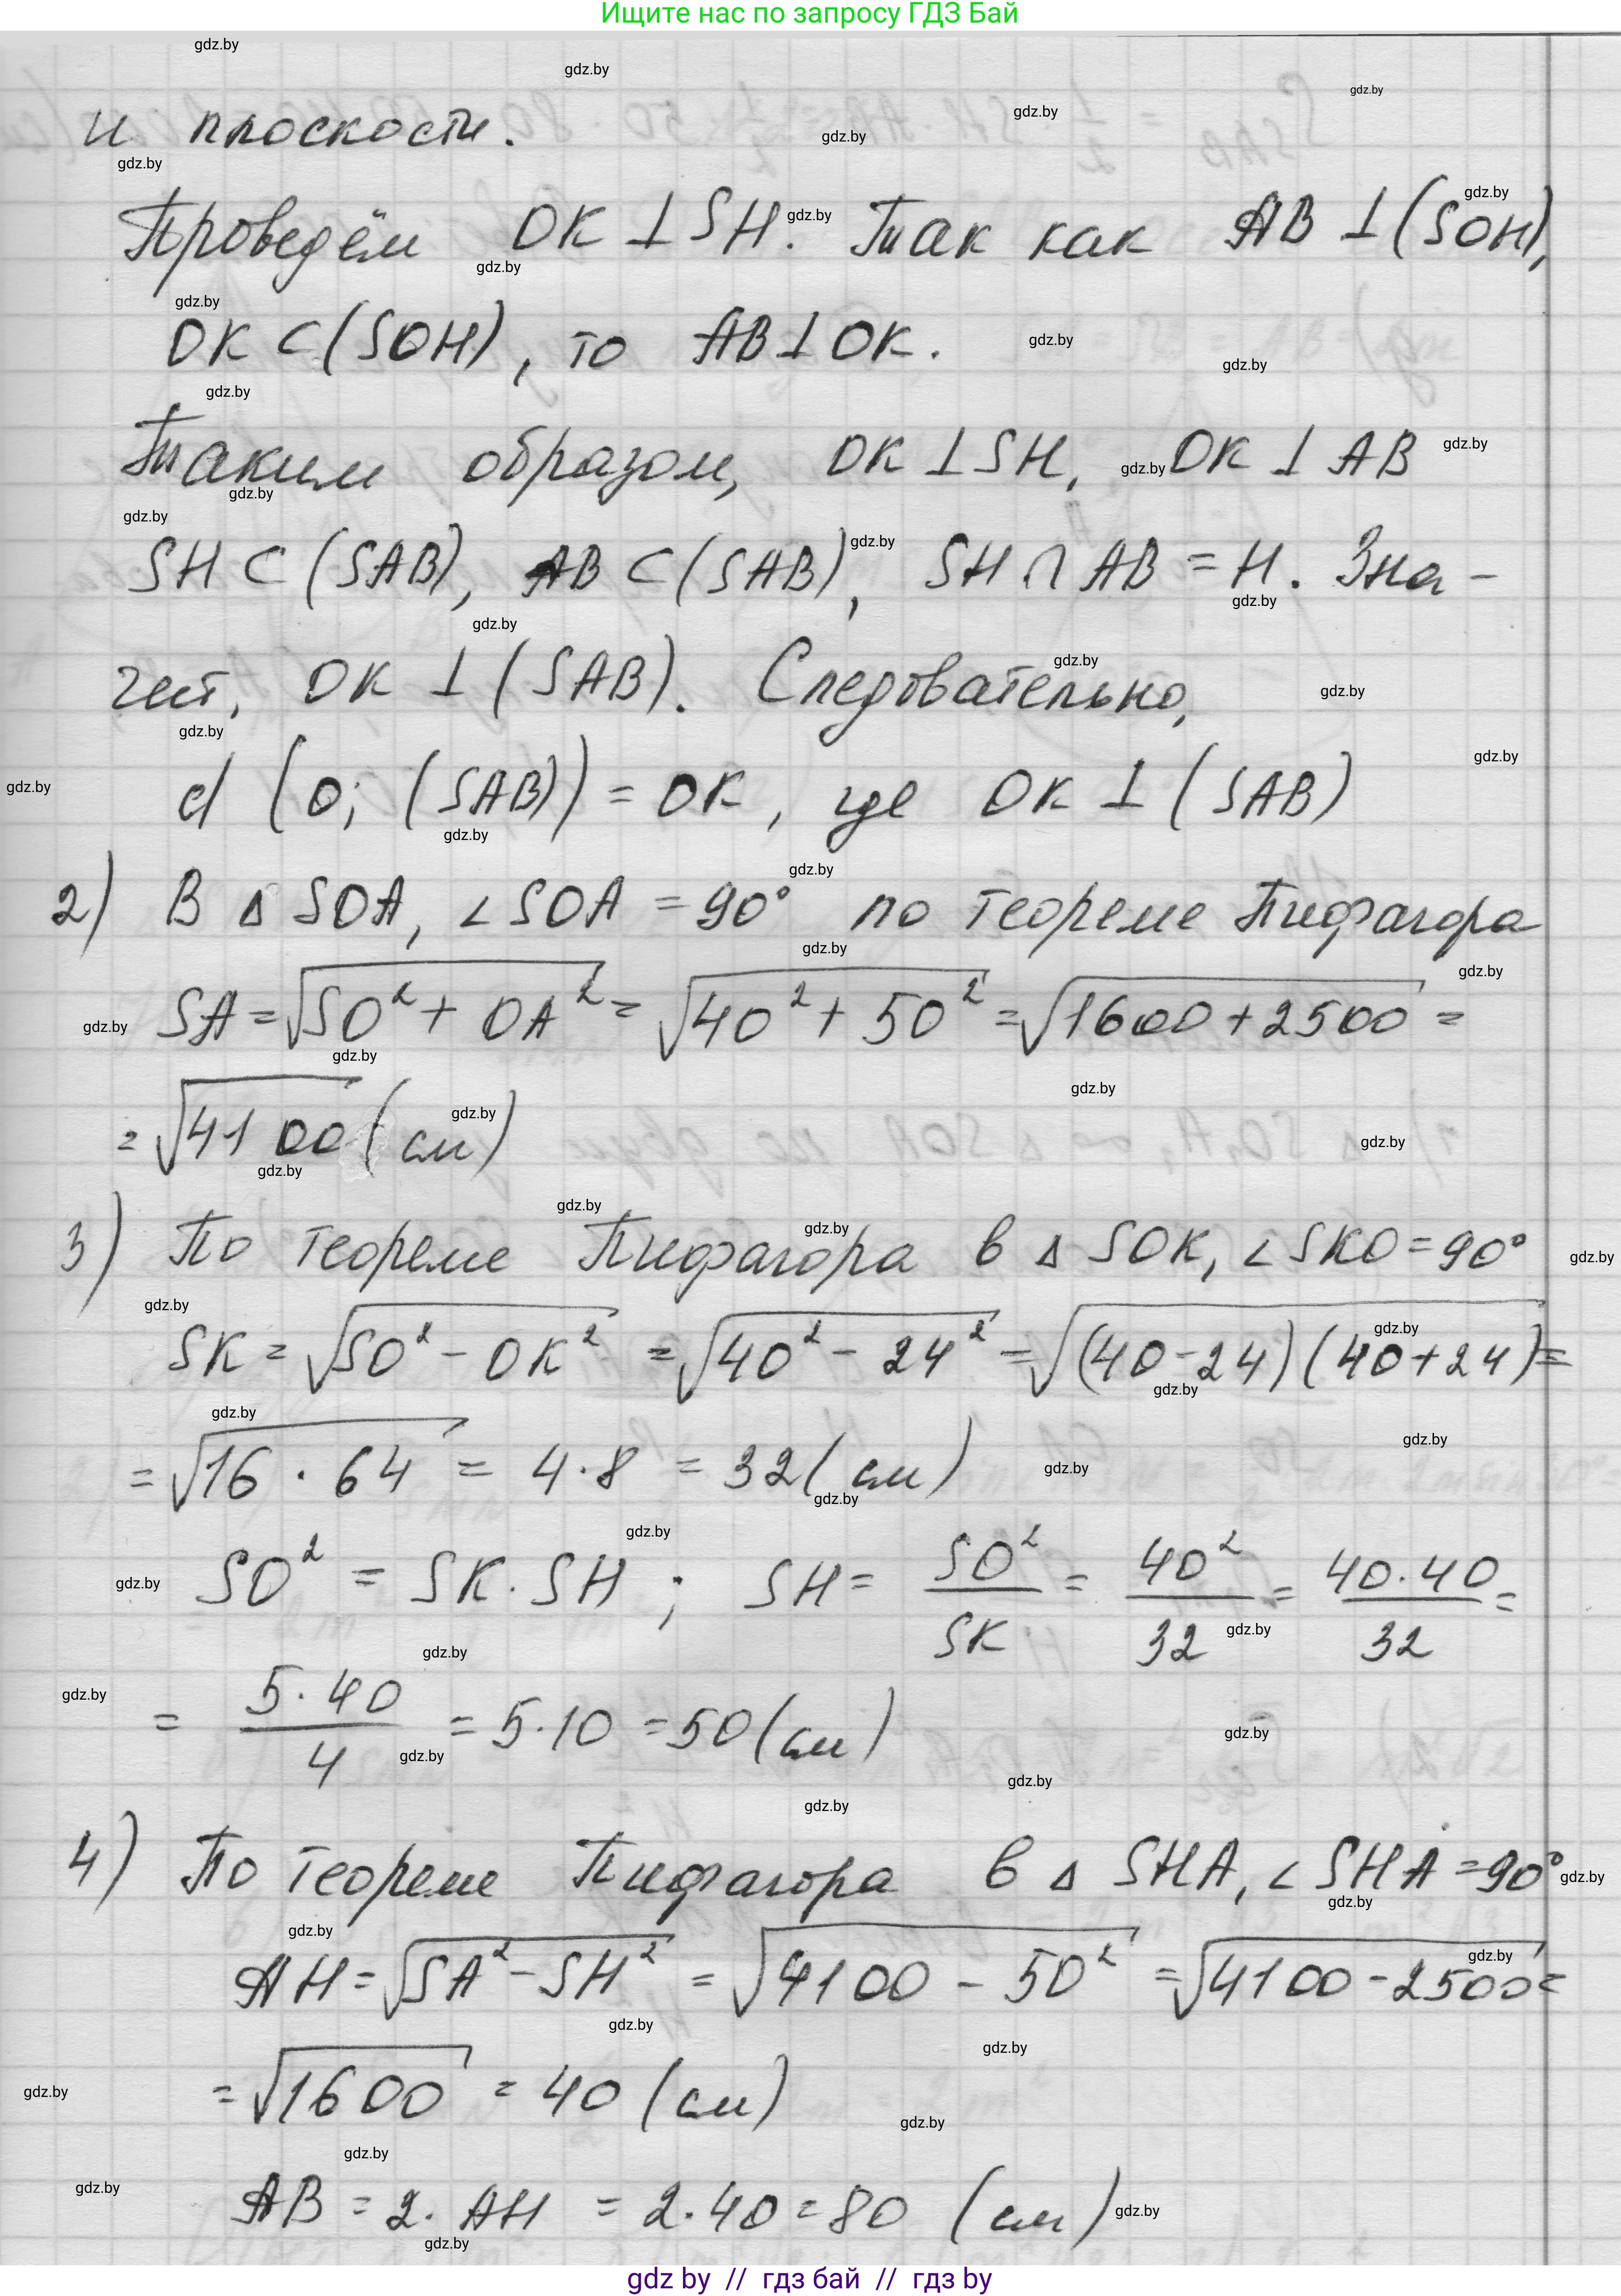 Ищите нас по запросу ГДЗ Бай
и плоскости.
Проведём OK ⊥ SH. Так как AB ⊥ (SOH),
OK ⊂ (SOH), то AB ⊥ OK.
Таким образом, OK ⊥ SH, OK ⊥ AB
SH ⊂ (SAB), AB ⊂ (SAB), SH ∩ AB = H. Зна-
чит, OK ⊥ (SAB). Следовательно,
d (O; (SAB)) = OK, где OK ⊥ (SAB)
2) В Δ SOA, ∠SOA = 90° по теореме Пифагора
SA = √(SO² + OA²) = √(40² + 50²) = √(1600 + 2500) =
= √4100 (см)
3) По теореме Пифагора в Δ SOK, ∠SKO = 90°
SK = √(SO² - OK²) = √(40² - 24²) = √((40-24)(40+24)) =
= √(16 · 64) = 4·8 = 32 (см)
SO² = SK · SH ; SH = SO²/SK = 40²/32 = 40·40/32 =
= 5·40/4 = 5·10 = 50 (см)
4) По теореме Пифагора в Δ SHA, ∠SHA = 90°
AH = √(SA² - SH²) = √(4100 - 50²) = √(4100 - 2500) =
= √1600 = 40 (см)
AB = 2 · AH = 2·40 = 80 (см)
gdz by // гдз бай // гдз by